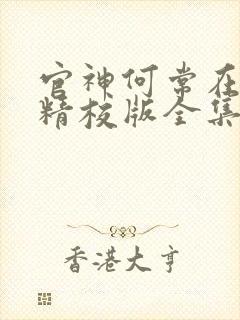 官神何常在
精校版全集
香港大亨